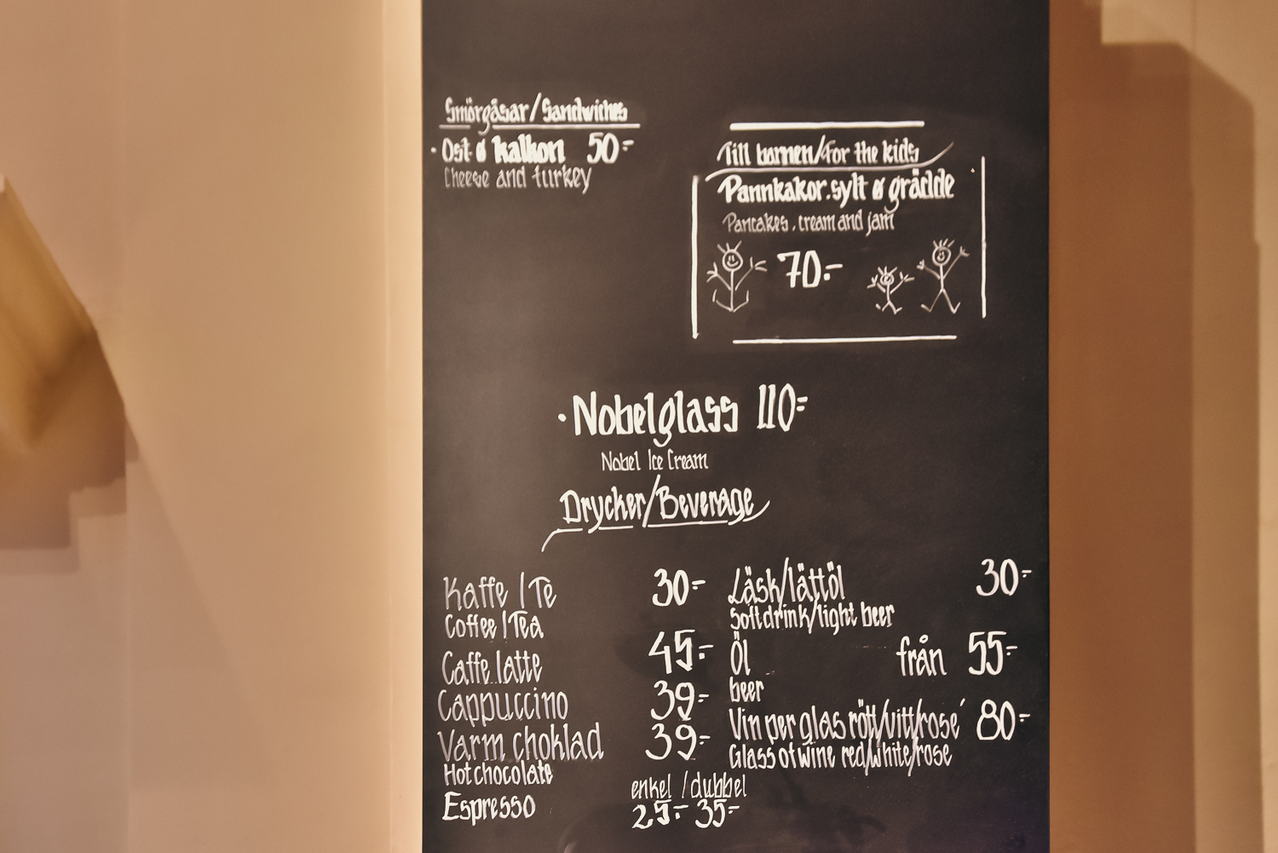 Smörgåsar/Sandwiches
· Ost ø kalkon 50:-
Cheese and turkey
Till barnen/For the kids
Pannkakor, sylt ø grädde
Pancakes, cream and jam
70:-
· Nobelglass 110:-
Nobel Ice Cream
Drycker/Beverage
Kaffe / Te 30:-
Coffee / Tea
Caffe latte 45:-
Cappuccino 39:-
Varm choklad 39:-
Hot chocolate
Espresso enkel / dubbel
25:- 35:-
Läsk/lättöl 30:-
Softdrink/light beer
Öl från 55:-
beer
Vin per glas rött/vitt/rosé 80:-
Glass of wine red/white/rose